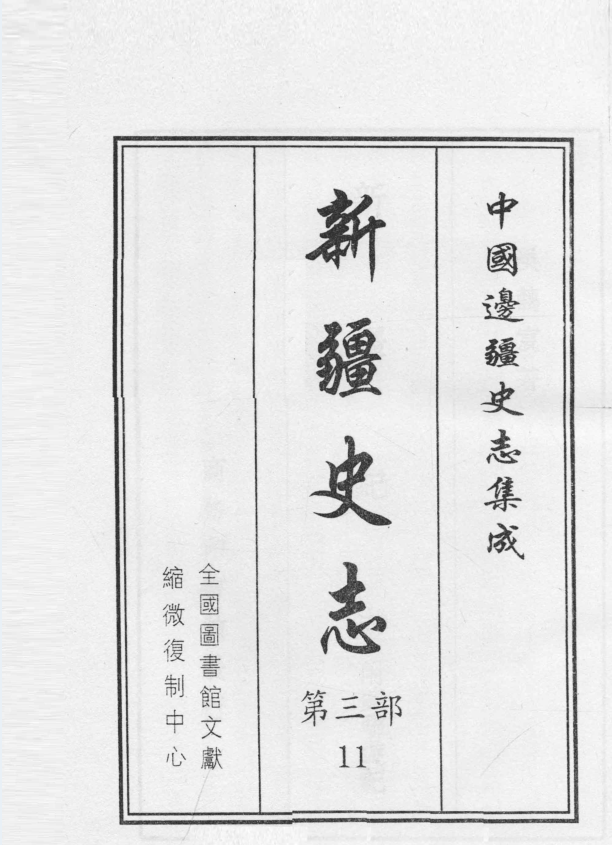 中國邊疆史志集成
新疆史志
第三部
11
全國圖書館文獻
縮微復制中心